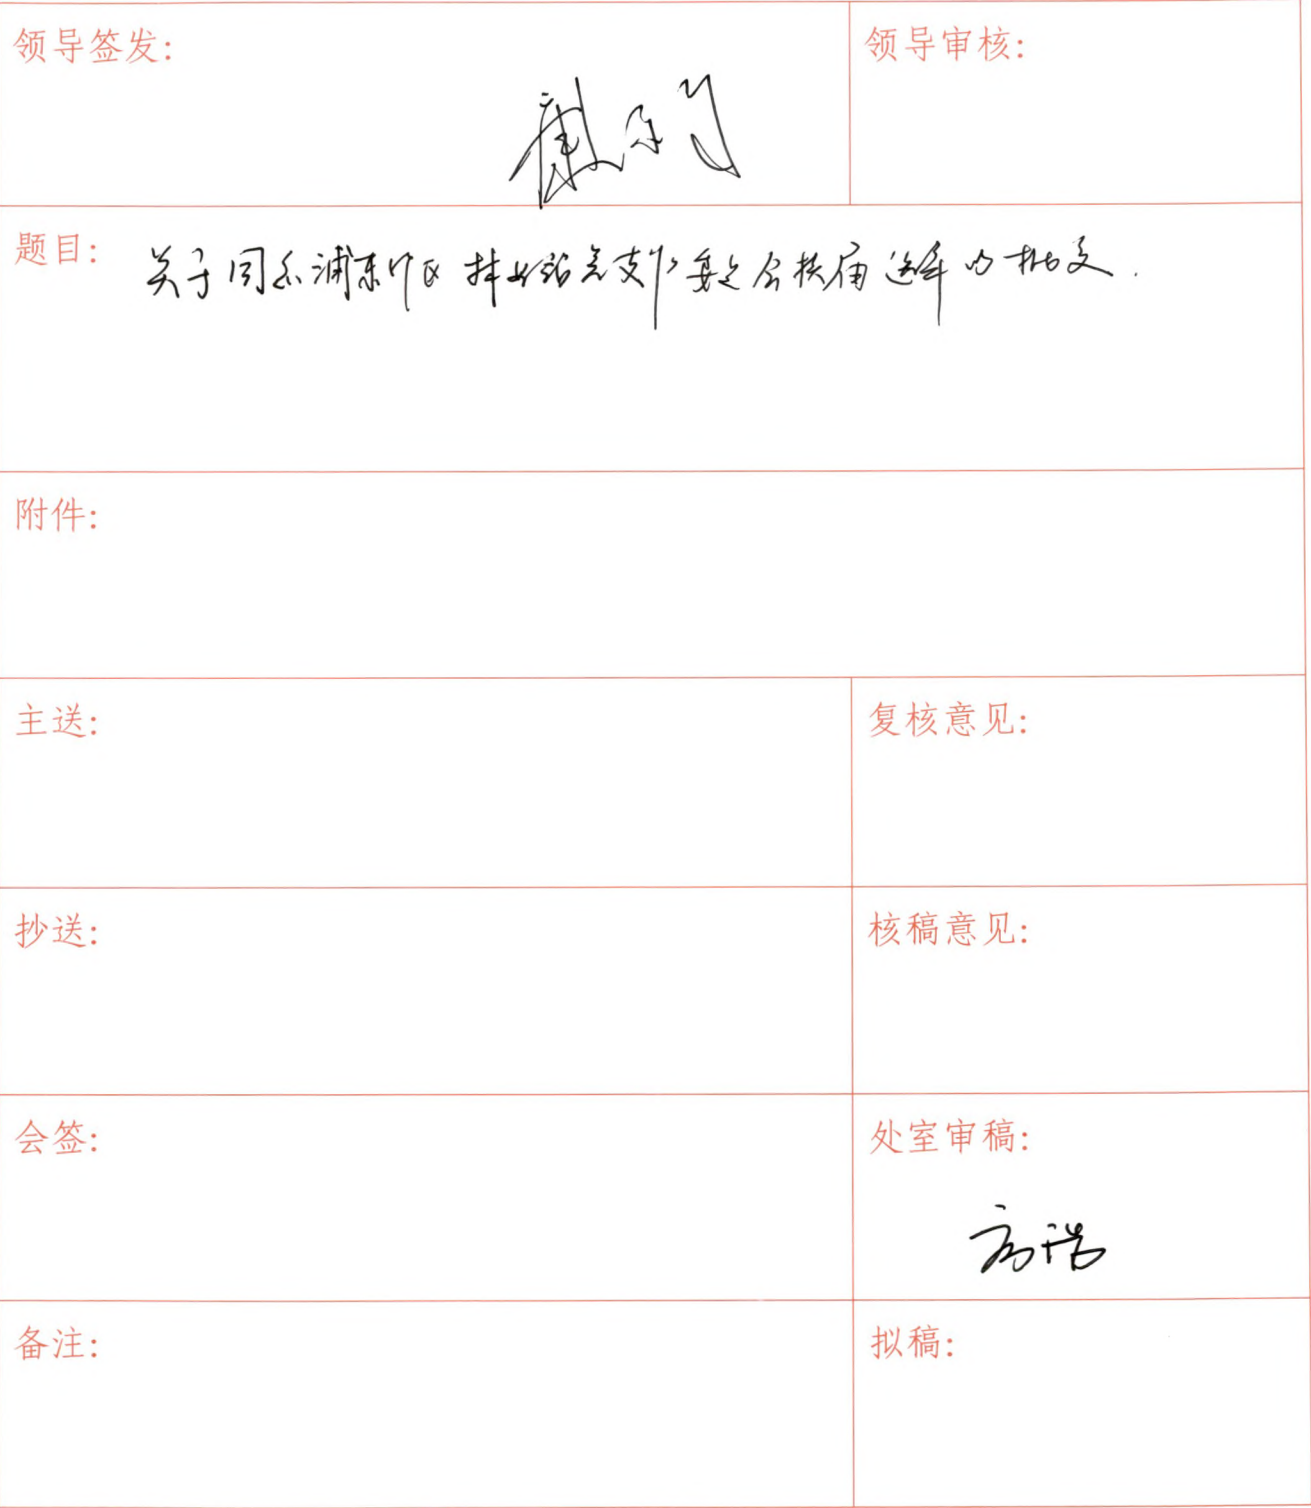 领导签发:
领导审核:
题目: 关于同意浦东 区 总支 委员会换届选举的批复.
附件:
主送:
复核意见:
抄送:
核稿意见:
会签:
处室审稿:
高浩
备注:
拟稿: